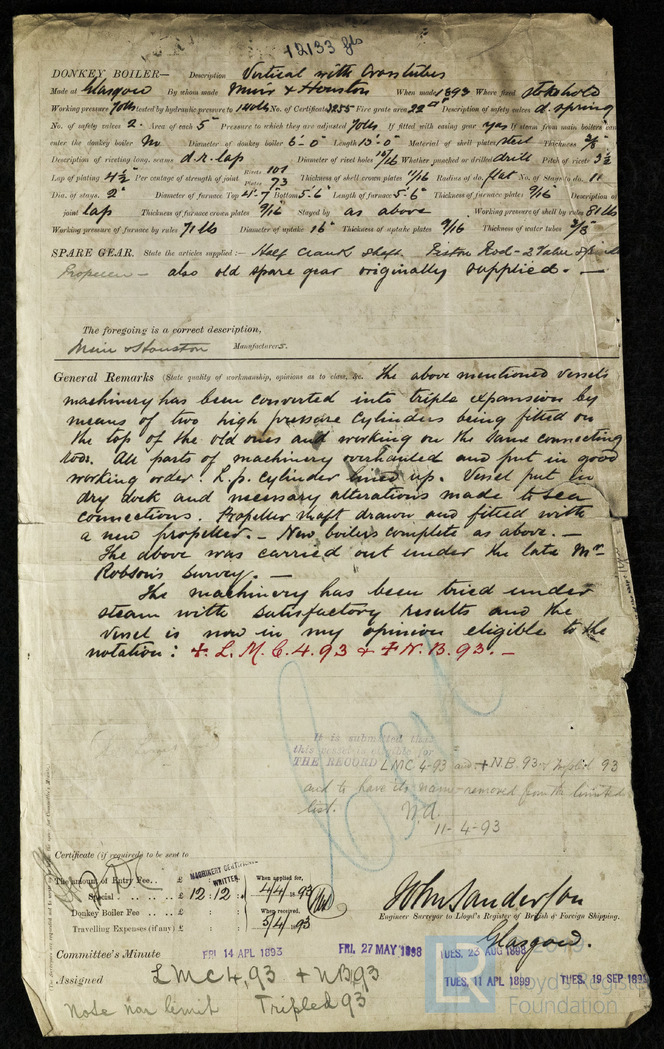 12133 gls
DONKEY BOILER— Description Vertical with Crosstubes
Made at Glasgow By whom made Muir & Houston When made 1893 Where fixed stokehold
Working pressure 70lbs tested by hydraulic pressure to 140lbs No. of Certificate 3255 Fire grate area 22 Description of safety valves d. spring
No. of safety valves 2. Area of each 5" Pressure to which they are adjusted 70lbs If fitted with easing gear yes If steam from main boilers can
enter the donkey boiler No Diameter of donkey boiler 6'-0" Length 13'-0" Material of shell plates steel Thickness
Description of riveting long. seams d.r. lap Diameter of rivet holes 13/16 Whether punched or drilled drill Pitch of rivets 3½
Lap of plating 4½ Per centage of strength of joint Rivets 101 Plates 73 Thickness of shell crown plates 9/16 Radius of do. flat No. of Stays to do. 11
Dia. of stays. 2" Diameter of furnace Top 4'-7" Bottom 5'-6" Length of furnace 5'-6" Thickness of furnace plates 9/16 Description of
joint lap Thickness of furnace crown plates 9/16 Stayed by as above Working pressure of shell by rules 81 lbs
Working pressure of furnace by rules 71 lbs Diameter of uptake 15" Thickness of uptake plates 9/16 Thickness of water tubes 3/8
SPARE GEAR. State the articles supplied:— Half Crank Shaft. Piston Rod - 2 Valve Spindles
Propeller — also old spare gear originally supplied. —
The foregoing is a correct description,
Muir & Houston Manufacturers.
General Remarks (State quality of workmanship, opinions as to class, &c. The above mentioned vessels
machinery has been converted into triple expansion by
means of two high pressure cylinders being fitted on
the top of the old ones and working on the same connecting
rods. All parts of machinery overhauled and put in good
working order. L.p. cylinder lined up. Vessel put in
dry dock and necessary alterations made to sea
connections. Propeller shaft drawn and fitted with
a new propeller. — New boilers complete as above. —
The above was carried out under the late Mr
Robson's survey. —
The machinery has been tried under
steam with satisfactory results and the
vessel is now in my opinion eligible to the
notation: + L.M.C. 4.93 & + N.B. 93. —
It is submitted that
this vessel is eligible for
THE RECORD LMC 4-93 and + N.B. 93 & Tripled 93
and to have its name removed from the limited
list.
11-4-93
Certificate (if required) to be sent to
MACHINERY CERTIFICATE WRITTEN.
The amount of Entry Fee.. £ : : When applied for,
Special .. .. £ 12 : 12 : 4/4 1893
Donkey Boiler Fee .. .. £ : : When received,
Travelling Expenses (if any) £ : : 5/4 1893
Wm Sanderson
Engineer Surveyor to Lloyd's Register of British & Foreign Shipping.
Glasgow.
Committee's Minute FRI 14 APL 1893 FRI. 27 MAY 1898 TUES. 23 AUG 1898
Assigned LMC 4,93 + NB,93 TUES. 11 APL 1899 TUES. 19 SEP 189
Note nor limit Tripled 93
LR
Lloyd's Register
Foundation